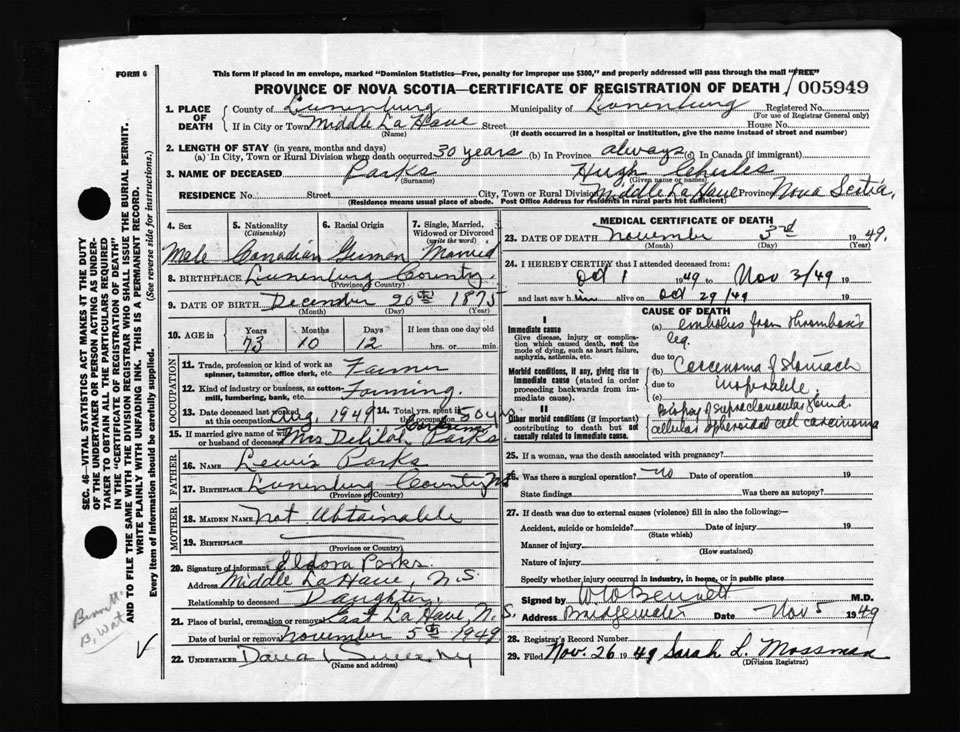 FORM 6
This form if placed in an envelope, marked "Dominion Statistics—Free, penalty for improper use $300," and properly addressed will pass through the mail "FREE"
PROVINCE OF NOVA SCOTIA—CERTIFICATE OF REGISTRATION OF DEATH 005949
1. PLACE OF DEATH
County of Lunenburg Municipality of Lunenburg Registered No.
(For use of Registrar General only)
If in City or Town Middle LaHave Street House No.
(Name) (If death occurred in a hospital or institution, give the name instead of street and number)
2. LENGTH OF STAY (in years, months and days)
(a) In City, Town or Rural Division where death occurred 30 years (b) In Province always (c) In Canada (if immigrant)
3. NAME OF DECEASED Parks Hugh Charles
(Surname) (Given name or names)
RESIDENCE No. Street City, Town or Rural Division Middle LaHave Province Nova Scotia,
(Residence means usual place of abode. Post Office Address for residents in rural parts not sufficient)
4. Sex 5. Nationality (Citizenship) 6. Racial Origin 7. Single, Married, Widowed or Divorced (write the word)
Male Canadian German Married
8. BIRTHPLACE Lunenburg Country.
(Province or Country)
9. DATE OF BIRTH December 20th 1875
(Month) (Day) (Year)
10. AGE in Years Months Days If less than one day old
73 10 12 hrs. or min.
OCCUPATION
11. Trade, profession or kind of work as spinner, teamster, office clerk, etc. Farmer
12. Kind of industry or business, as cotton-mill, lumbering, bank, etc. Farming.
13. Date deceased last worked at this occupation Aug 1949 14. Total yrs. spent in this occupation 50 yrs
15. If married give name of wife or husband of deceased Mrs Delilah Parks
FATHER
16. NAME Lewis Parks
17. BIRTHPLACE Lunenburg County N.S
(Province or Country)
MOTHER
18. MAIDEN NAME not Obtainable
19. BIRTHPLACE
(Province or Country)
20. Signature of informant Eldora Parks.
Address Middle LaHave, N.S.
Relationship to deceased Daughter.
21. Place of burial, cremation or removal East LaHave, N.S.
Date of burial or removal November 5th 1949
22. UNDERTAKER
(Name and address)
MEDICAL CERTIFICATE OF DEATH
23. DATE OF DEATH November 3rd 1949.
(Month) (Day) (Year)
24. I HEREBY CERTIFY that I attended deceased from:
Oct 1 1949 to Nov 3/49 19
and last saw him alive on Oct 29/49 19
CAUSE OF DEATH
I
Immediate cause
Give disease, injury or complication which caused death, not the mode of dying, such as heart failure, asphyxia, asthenia, etc.
(a) embolus from thrombosis leg.
due to
Morbid conditions, if any, giving rise to immediate cause (stated in order proceeding backwards from immediate cause).
(b) Carcinoma of Stomach
due to inoperable.
(c)
II
Other morbid conditions (if important) contributing to death but not causally related to immediate cause.
Biopsy of supraclavicular gland.
cellular spheroidal cell carcinoma
25. If a woman, was the death associated with pregnancy?
26. Was there a surgical operation? no Date of operation 19
State findings Was there an autopsy?
27. If death was due to external causes (violence) fill in also the following:—
Accident, suicide or homicide? Date of injury 19
(State which)
Manner of injury
(How sustained)
Nature of injury
Specify whether injury occurred in industry, in home, or in public place
Signed by W O Bennett M.D.
Address Bridgewater Date Nov 5 1949
28. Registrar's Record Number
29. Filed Nov. 26 1949 Sarah L. Mossman
(Division Registrar)
SEC. 46—VITAL STATISTICS ACT MAKES IT THE DUTY
OF THE UNDERTAKER OR PERSON ACTING AS UNDERTAKER TO OBTAIN ALL THE PARTICULARS REQUIRED
IN THE "CERTIFICATE OF REGISTRATION OF DEATH"
AND TO FILE THE SAME WITH THE DIVISION REGISTRAR WHO SHALL ISSUE THE BURIAL PERMIT.
WRITE PLAINLY WITH UNFADING INK. THIS IS A PERMANENT RECORD.
Every item of Information should be carefully supplied. (See reverse side for instructions.)
Bennett
B. Wat